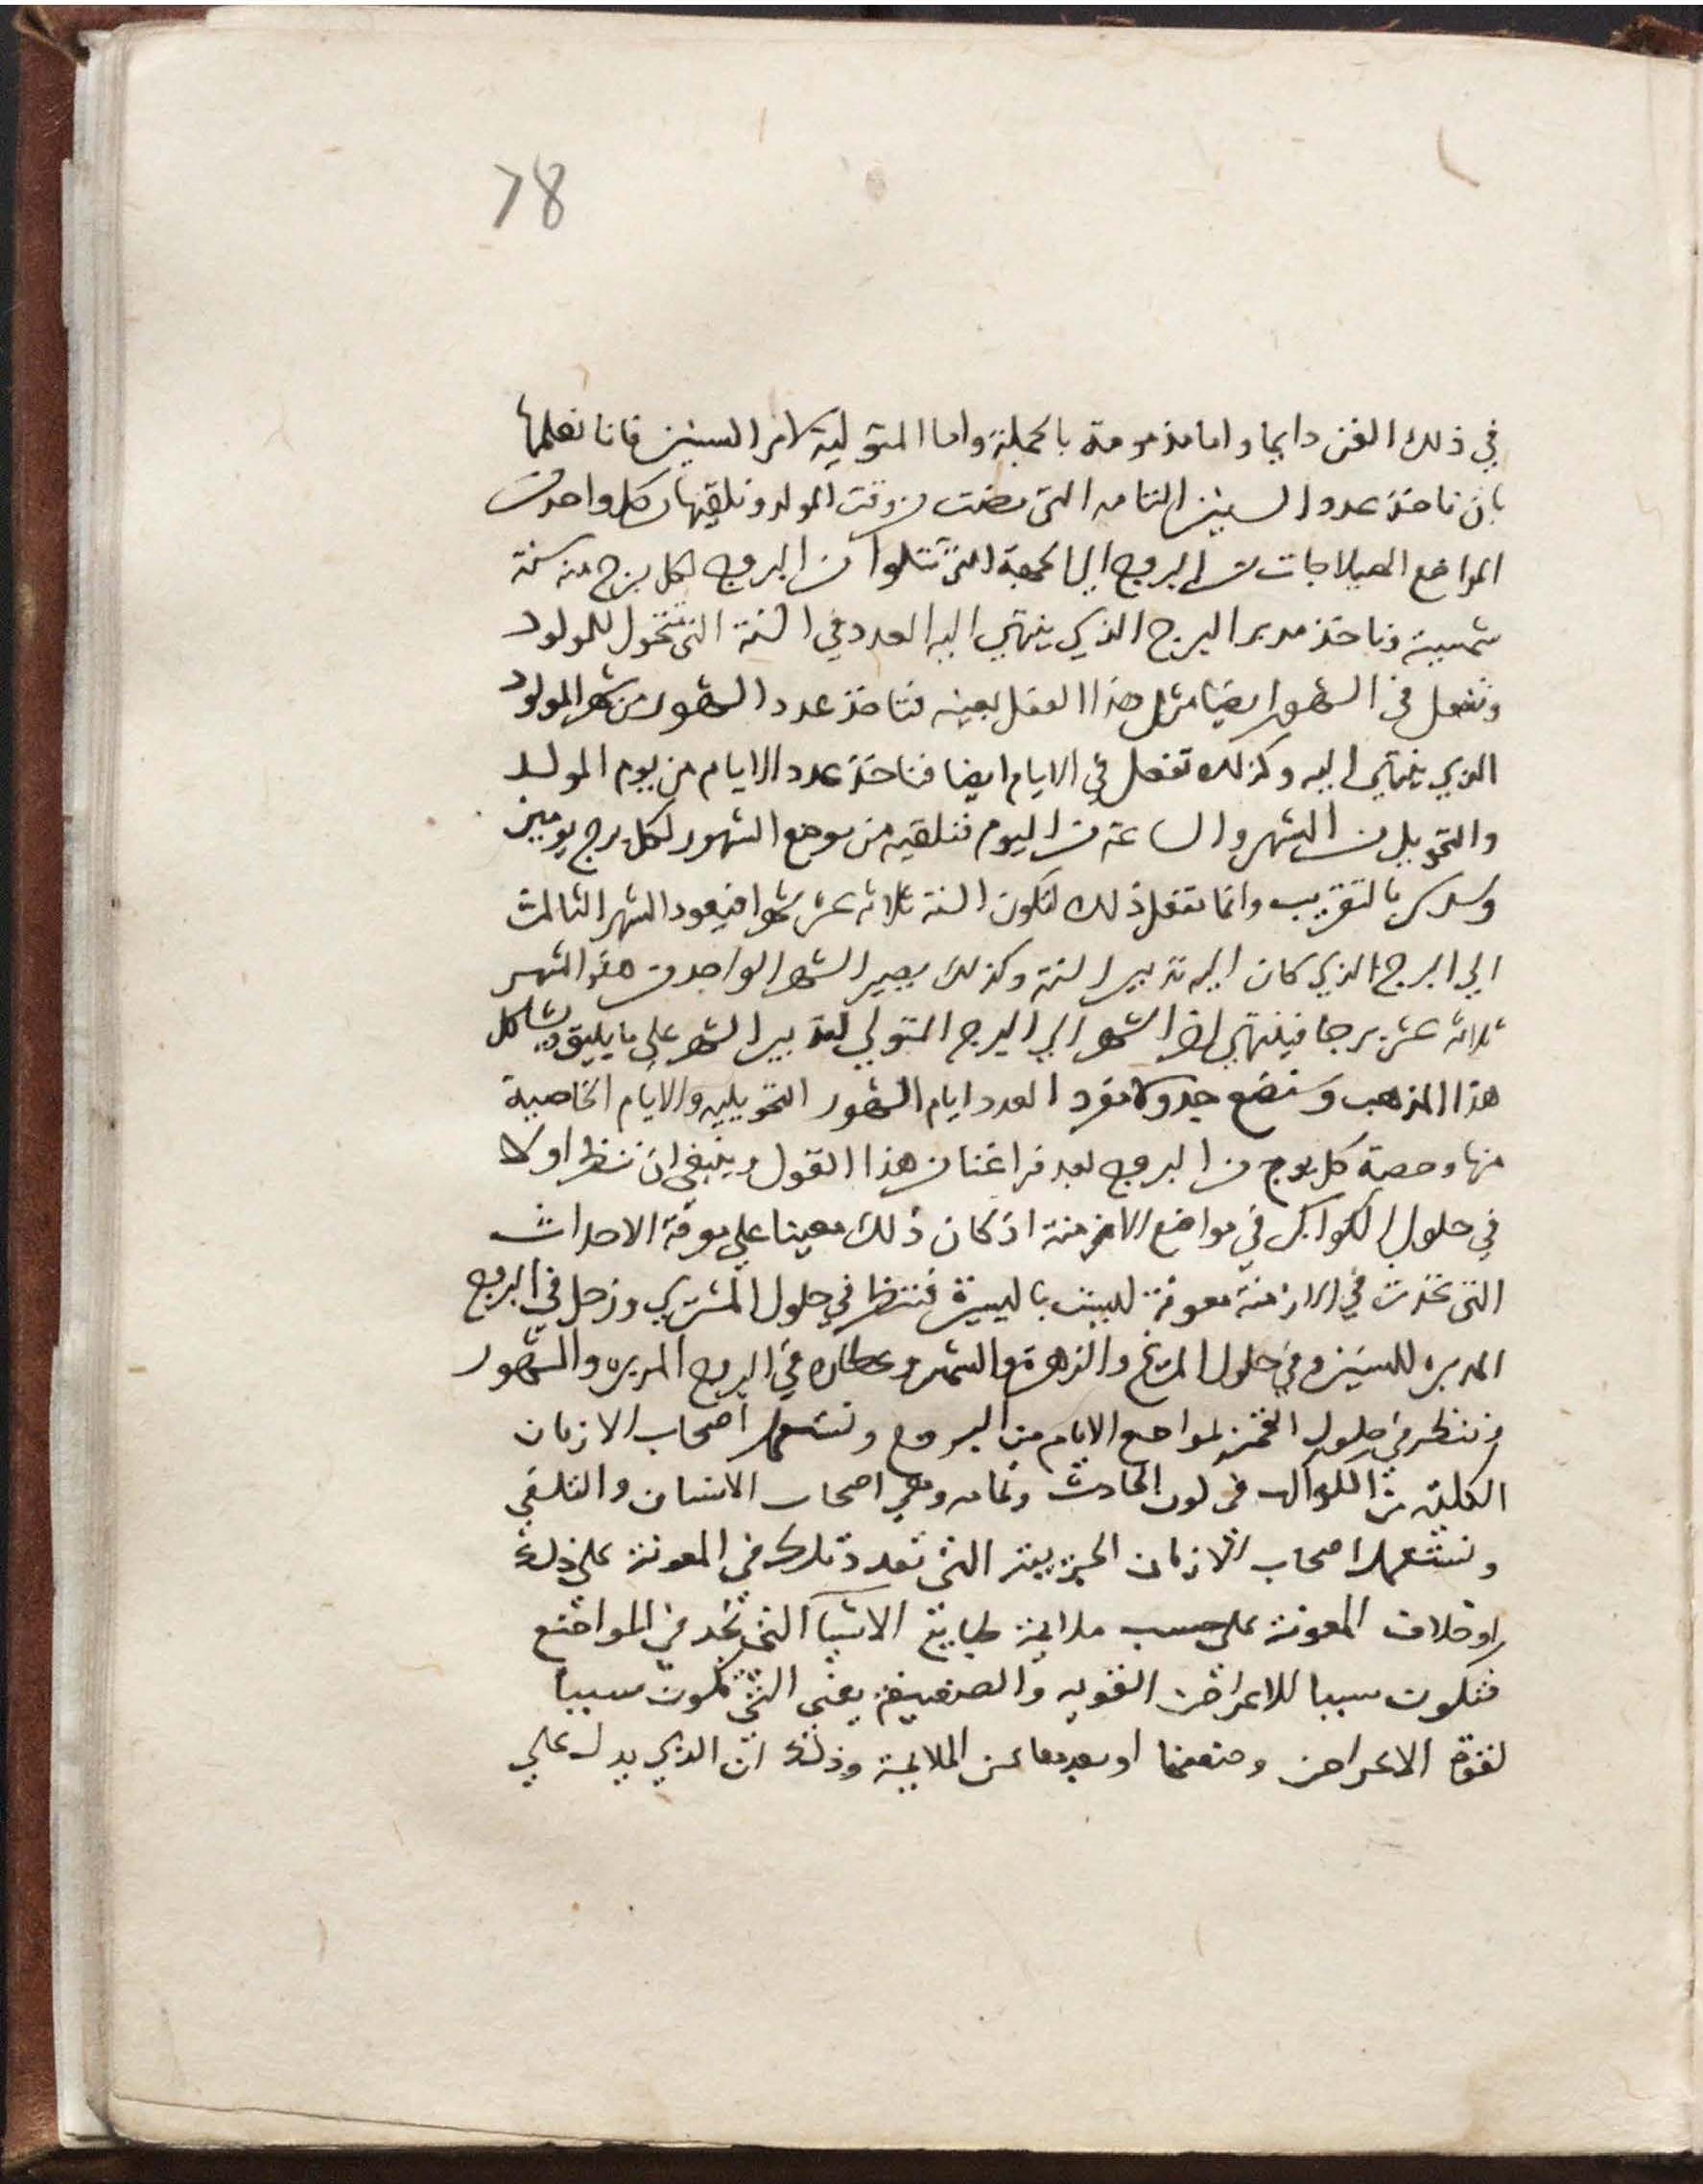 78
في ذلك الفن دايما واما مذمومة بالجملة واما المتولية لامر السنين فانا نعلمها
بان ناخذ عدد السنين التامه التي مضت من وقت المولد ونلقيها من كل واحد من
المواضع الهيلاجات من البروج الي الجهة التي تتلوا من البروج لكل برج منه سنة
شمسية وناخذ مدبر البرج الذي ينتهي اليه العدد في السنة التي تتحول للمولود
ونفعل في الشهور ايضا مثل هذا الفعل بعينه فناخذ عدد الشهور من شهر المولود
الذي ينتهي اليه وكذلك نفعل في الايام ايضا فناخذ عدد الايام من يوم المولد
والتحويل من الشهر والساعة من اليوم فنلقيه من موضع الشهور لكل برج يومين
بالتقريب وانما نفعل ذلك لتكون السنة ثلاثه عشر شهرا فيعود الشهر الثالث
الي البرج الذي كان اليه تدبير السنة وكذلك يصير الشهر الواحد من هذه الشهر
ثلاثه عشر برجا فينتهي اخر الشهر الي البرج المتولي لتدبير الشهر علي ما يليق ويشاكل
هذا المذهب وسنضع جدولا مفردا لعدد ايام الشهور التحويليه والايام الخاصية
منها وحصة كل برج من البروج بعد فراغنا من هذا القول وينبغي ان ننظر اولا
في حلول الكواكب في مواضع الازمنة اذ كان ذلك معينا علي معرفة الاحداث
التي تحدث في الازمنة معونة ليست باليسيرة فننظر في حلول المشتري وزحل في البروج
المدبره للسنين وفي حلول المريخ والزهرة والشمس وعطارد في البروج المدبره والشهور
وننظر في حلول القمر لمواضع الايام من البروج ونستعمل اصحاب الازمان
الكلية من الكواكب في كون الحادث وتمامه وهي اصحاب الانتهات والتلقي
ونستعمل اصحاب الازمان الجزييه التي تعدد تلك في المعونة علي ذلك
او خلاف المعونة علي حسب ملايمة طبايع الاشيا التي تجد في المواضع
فتكون سببا للاعراض القويه والضعيفة يعني التي تكون سببا
لقوة الاعراض وضعفها او بعدها عن الملايمة وذلك ان الذي يدل علي